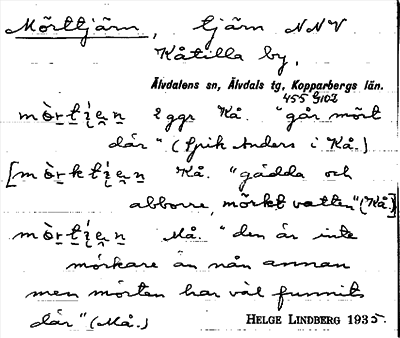 Mörttjärn, tjärn NNV
Kåtilla by,
Älvdalens sn, Älvdals tg, Kopparbergs län.
455 G102
mò̱rt̯i̯e̯n̯ 2 ggr Kå. "går mört
där" (Erik Anders i Kå.)
[mò̱rkt̯i̯e̯n̯ Kå. "gädda och
abborre, mörkt vatten" (Kå.)]
mò̱rt̯i̯e̯n̯ Må. "den är inte
mörkare än nån annan
men mörten har väl funnits
där" (Må.)
HELGE LINDBERG 1935.